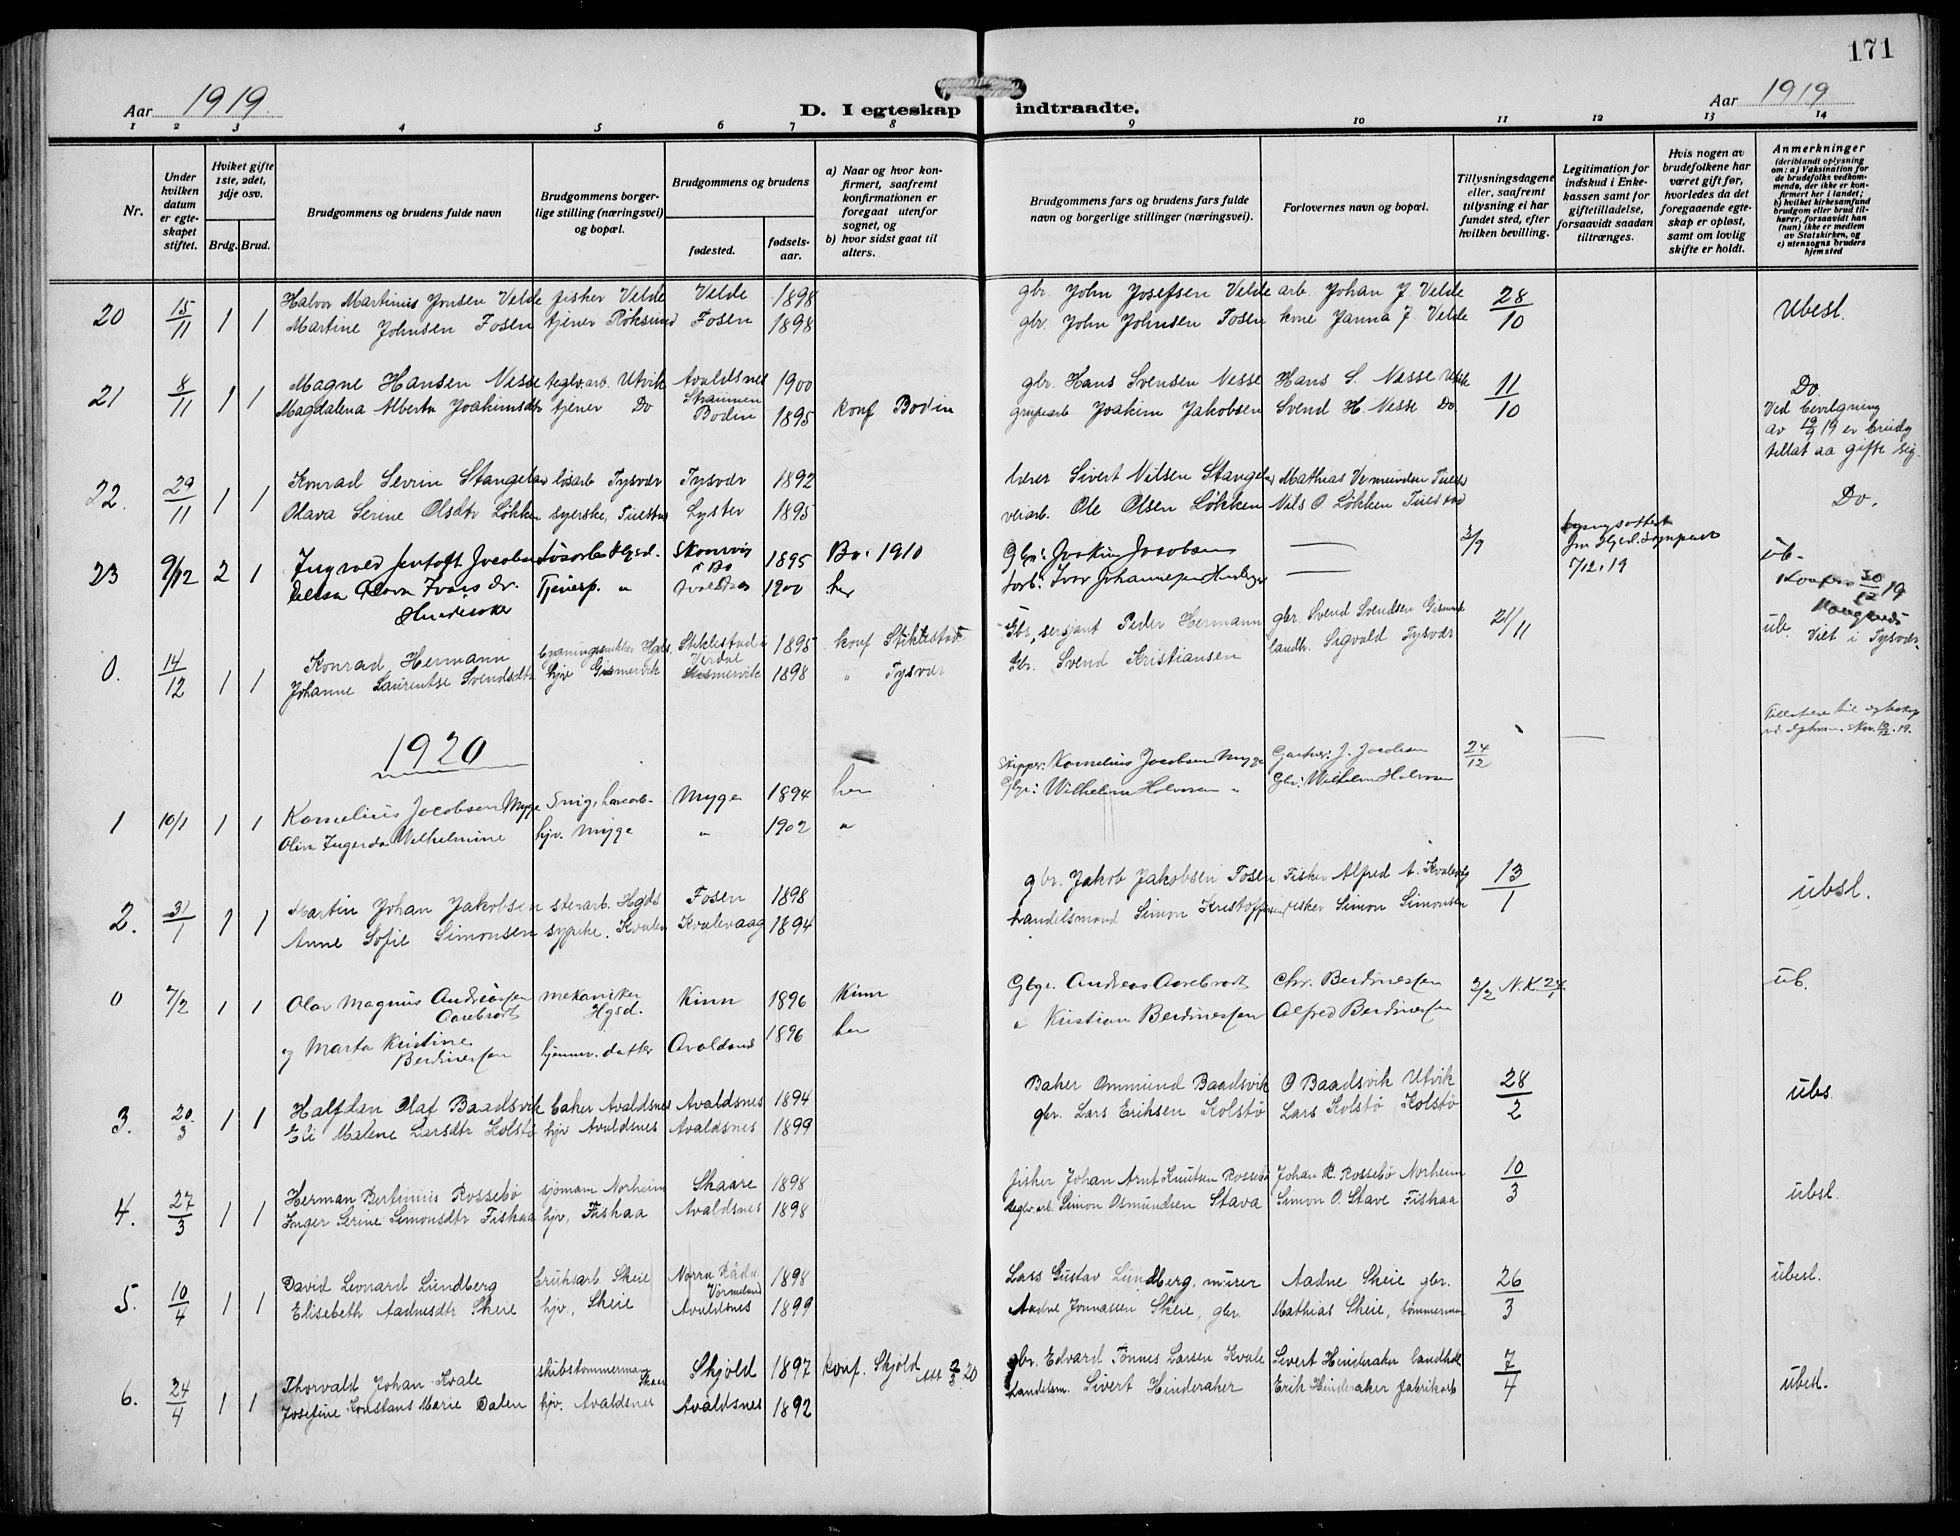 171
Aar 1919.
D. I egteskap indtraadte.
Aar 1919
1 2 3 4 5 6 7 8 9 10 11 12 13 14
Nr.
Under hvilken datum er egteskapet stiftet.
Hviket gifte 1ste, 2det, 3dje osv.
Brdg. Brud.
Brudgommens og brudens fulde navn
Brudgommens borgerlige stilling (næringsvei) og bopæl.
Brudgommens og brudens
fødested.
fødselsaar.
a) Naar og hvor konfirmert, saafremt konfirmationen er foregaat utenfor sognet, og
b) hvor sidst gaat til alters.
Brudgommens fars og brudens fars fulde navn og borgerlige stillinger (næringsvei).
Forlovernes navn og bopæl.
Tillysningsdagene eller, saafremt tillysning ei har fundet sted, efter hvilken bevilling.
Legitimation for indskud i Enkekassen samt for giftetilladelse, forsaavidt saadan tiltrænges.
Hvis nogen av brudefolkene har været gift før, hvorledes da det foregaaende egteskap er opløst, samt om lovlig skifte er holdt.
Anmerkninger
(deriblandt oplysning om: a) Vaksination for de brudefolks vedkommende, der ikke er konfirmert her i landet; b) hvilket kirkesamfund brudgom eller brud tilhører, forsaavidt han (hun) ikke er medlem av Statskirken, og c) utensogns bruders hjemsted
20 15/11 1 1 Halvor Martinius Jonsen Velde fisker Velde Velde 1898 gbr. John Josefsen Velde arb. Johan J. Velde 28/10 Ubesl.
Martine Johnsen Fosen tjener Röksund Fosen 1898 gbr. John Johnsen Fosen kone Janna J. Velde
21 8/11 1 1 Magne Hansen Nesse teglv.arb. Utvik Avaldsnes 1900 gbr. Hans Svensen Nesse Hans S. Nesse Utvik 11/10 Do.
Magdalena Alberta Joakimsdtr tjener Do Straumen Bodin 1895 konf Bodin grubearb Joakim Jakobsen Svend H. Nesse Do
Ved bevilgning av 19 er brudg tillat aa gifte sig.
22. 29/11 1 1 Konrad Sevrin Stangeland løsarb Tysvær Tysvær 1892 lærer Sivert Nilsen Stangeland Mathias Vermundsen
Olava Serine Olsdtr Løkken syerske, Lyster 1895 verarb. Ole Olsen Løkken Nils O Løkken Do.
23 9/12 2 1 Ingvald Jentoft Jacobsen Løsarb. Hgsd. i Bø 1895 Bø. 1910 Gbr: Joakim Jacobsen — 3/9 7/12.19 ub.
Olava Ivars dr. Hinderaker Tjenerp. " Avaldsnes 1900 her Ivar Johannesen —
0. 14/12 1 1 Konrad Hermann Hgds. Stiklestad i Verdal 1895 konf Stiklestad Gbr, sersjant Peder Hermann gbr. Svend Svendsen 21/11 ub. Viet i Tysvær
Johanne Laurentse Svendsdtr hjv Gismervik Gismervik 1898 " Tysvær Gbr. Svend Kristiansen landh. Sigvald Tysvær
1920
1 10/1 1 1 Kornelius Jacobsen Myge Myge 1894 her Skipper: Kornelius Jacobsen Myge Gartner: J. Jacobsen 24/12 —
Oliva Ingerda Wilhelmine hjv. Myge " 1902 " Gbr: Wilhelm " Gbr: Wilhelm
2. 31/1 1 1 Martin Johan Jakobsen stenarb. Hgds Fosen 1898 gbr. Jakob Jakobsen Fosen Fisker Alfred A. 13/1 ubsl.
Anne Sofie Simonsen syerske. Kvalev Kvalevaag 1894 handelsmand Simon Kristoffersen fisker Simon Simonsen
0 7/2 1 1 Olav Magnus Andreassen Aarebrot mekaniker Hgsd. Kinn 1896 Kinn Gbr. Andreas Aarebrot Chr. Berdinessen 2/2 N.K. 24/1 ub.
og Marta Kristine Berdinessen hjemmev. datter Avaldsnes 1896 her " Kristian Berdinessen Alfred Berdinessen
3. 20/3 1 1 Halfdan Olaf Baadsvik baker Avaldsnes Avaldsnes 1894 Baker Ommund Baadsvik O Baadsvik Utvik 28/2 ubs.
Eli Malene Larsdtr Kolstø hjv Avaldsnes Avaldsnes 1899 gbr. Lars Eriksen Kolstø Lars Kolstø Kolstø
4. 27/3 1 1 Herman Bertinius Rossebø sjømann Norheim Skaare 1898 fisker Johan Arnt Knutsen Rossebø Johan K. Rossebø Norheim 10/3 ubsl.
Inger Serine Simonsdtr Fiskaa hjv, Fiskaa Avaldsnes 1898 teglv.arb. Simon Osmundsen Stava Simon O. Stave Fiskaa
5. 10/4 1 1 David Leonard Lundberg bruksarb. Skeie Norra Råda Vermland 1898 Lars Gustav Lundberg, murer Aadne Skeie gbr. 26/3 ubesl.
Elisebeth Aadnesdtr Skeie hjv, Skeie Avaldsnes 1899 Aadne Jonnassen Skeie, gbr. Mathias Skeie, tømmerman
6. 24/4 1 1 Thorvald Johan Kvale skibstømmermann Skaare Skjold 1897 konf. Skjold att 2/3 20 gbr. Edvard Tønnes Larsen Kvale Sivert Hinderaker landhdl 7/4 ubesl.
Josefine Konstans Marie Dalen hjv. Avaldsnes Avaldsnes 1892 Landelsm. Sivert Hinderaker Erik Hinderaker fabrikarb